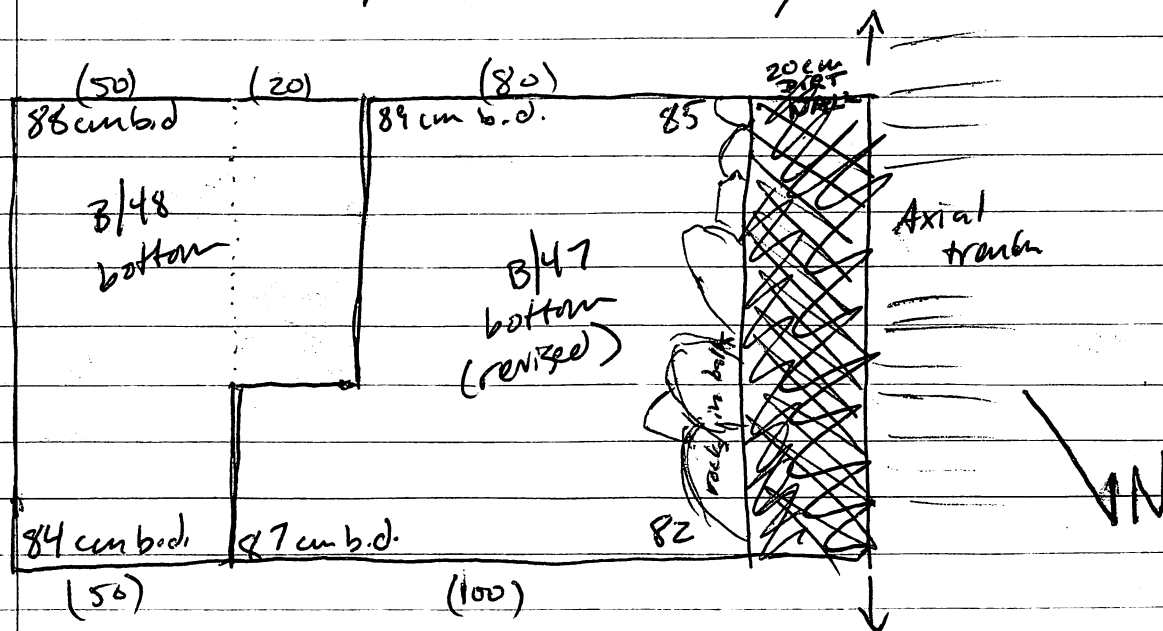 (50) (20) (80) 20 cm
DIRT
WALL
88 cm b.d 89 cm b.d. 85
B/48
bottom
B/47
bottom
(revised)
Axial
trench
rocks in balk
N
84 cm b.d. 87 cm b.d. 82
(50) (100)